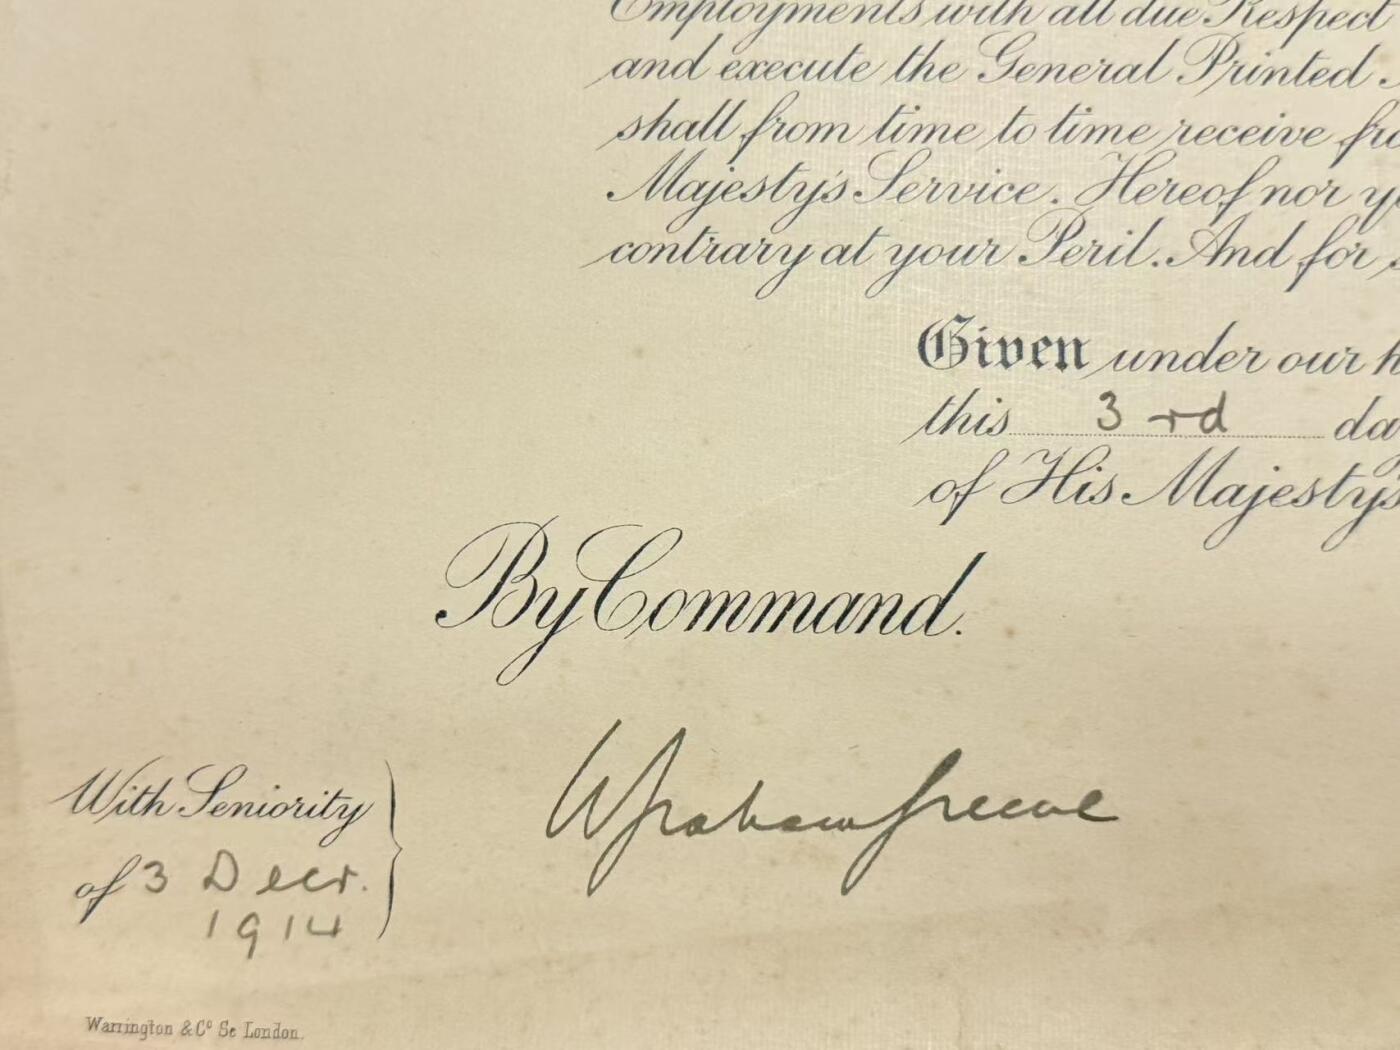 Employments with all due Respect
and execute the General Printed
shall from time to time receive
Majesty's Service. Hereof nor
contrary at your Peril. And for
Given under our
this 3rd
of His Majesty's
By Command.
W Graham Greene
With Seniority
of 3 Decr.
1914
Warrington & Co Sc London.